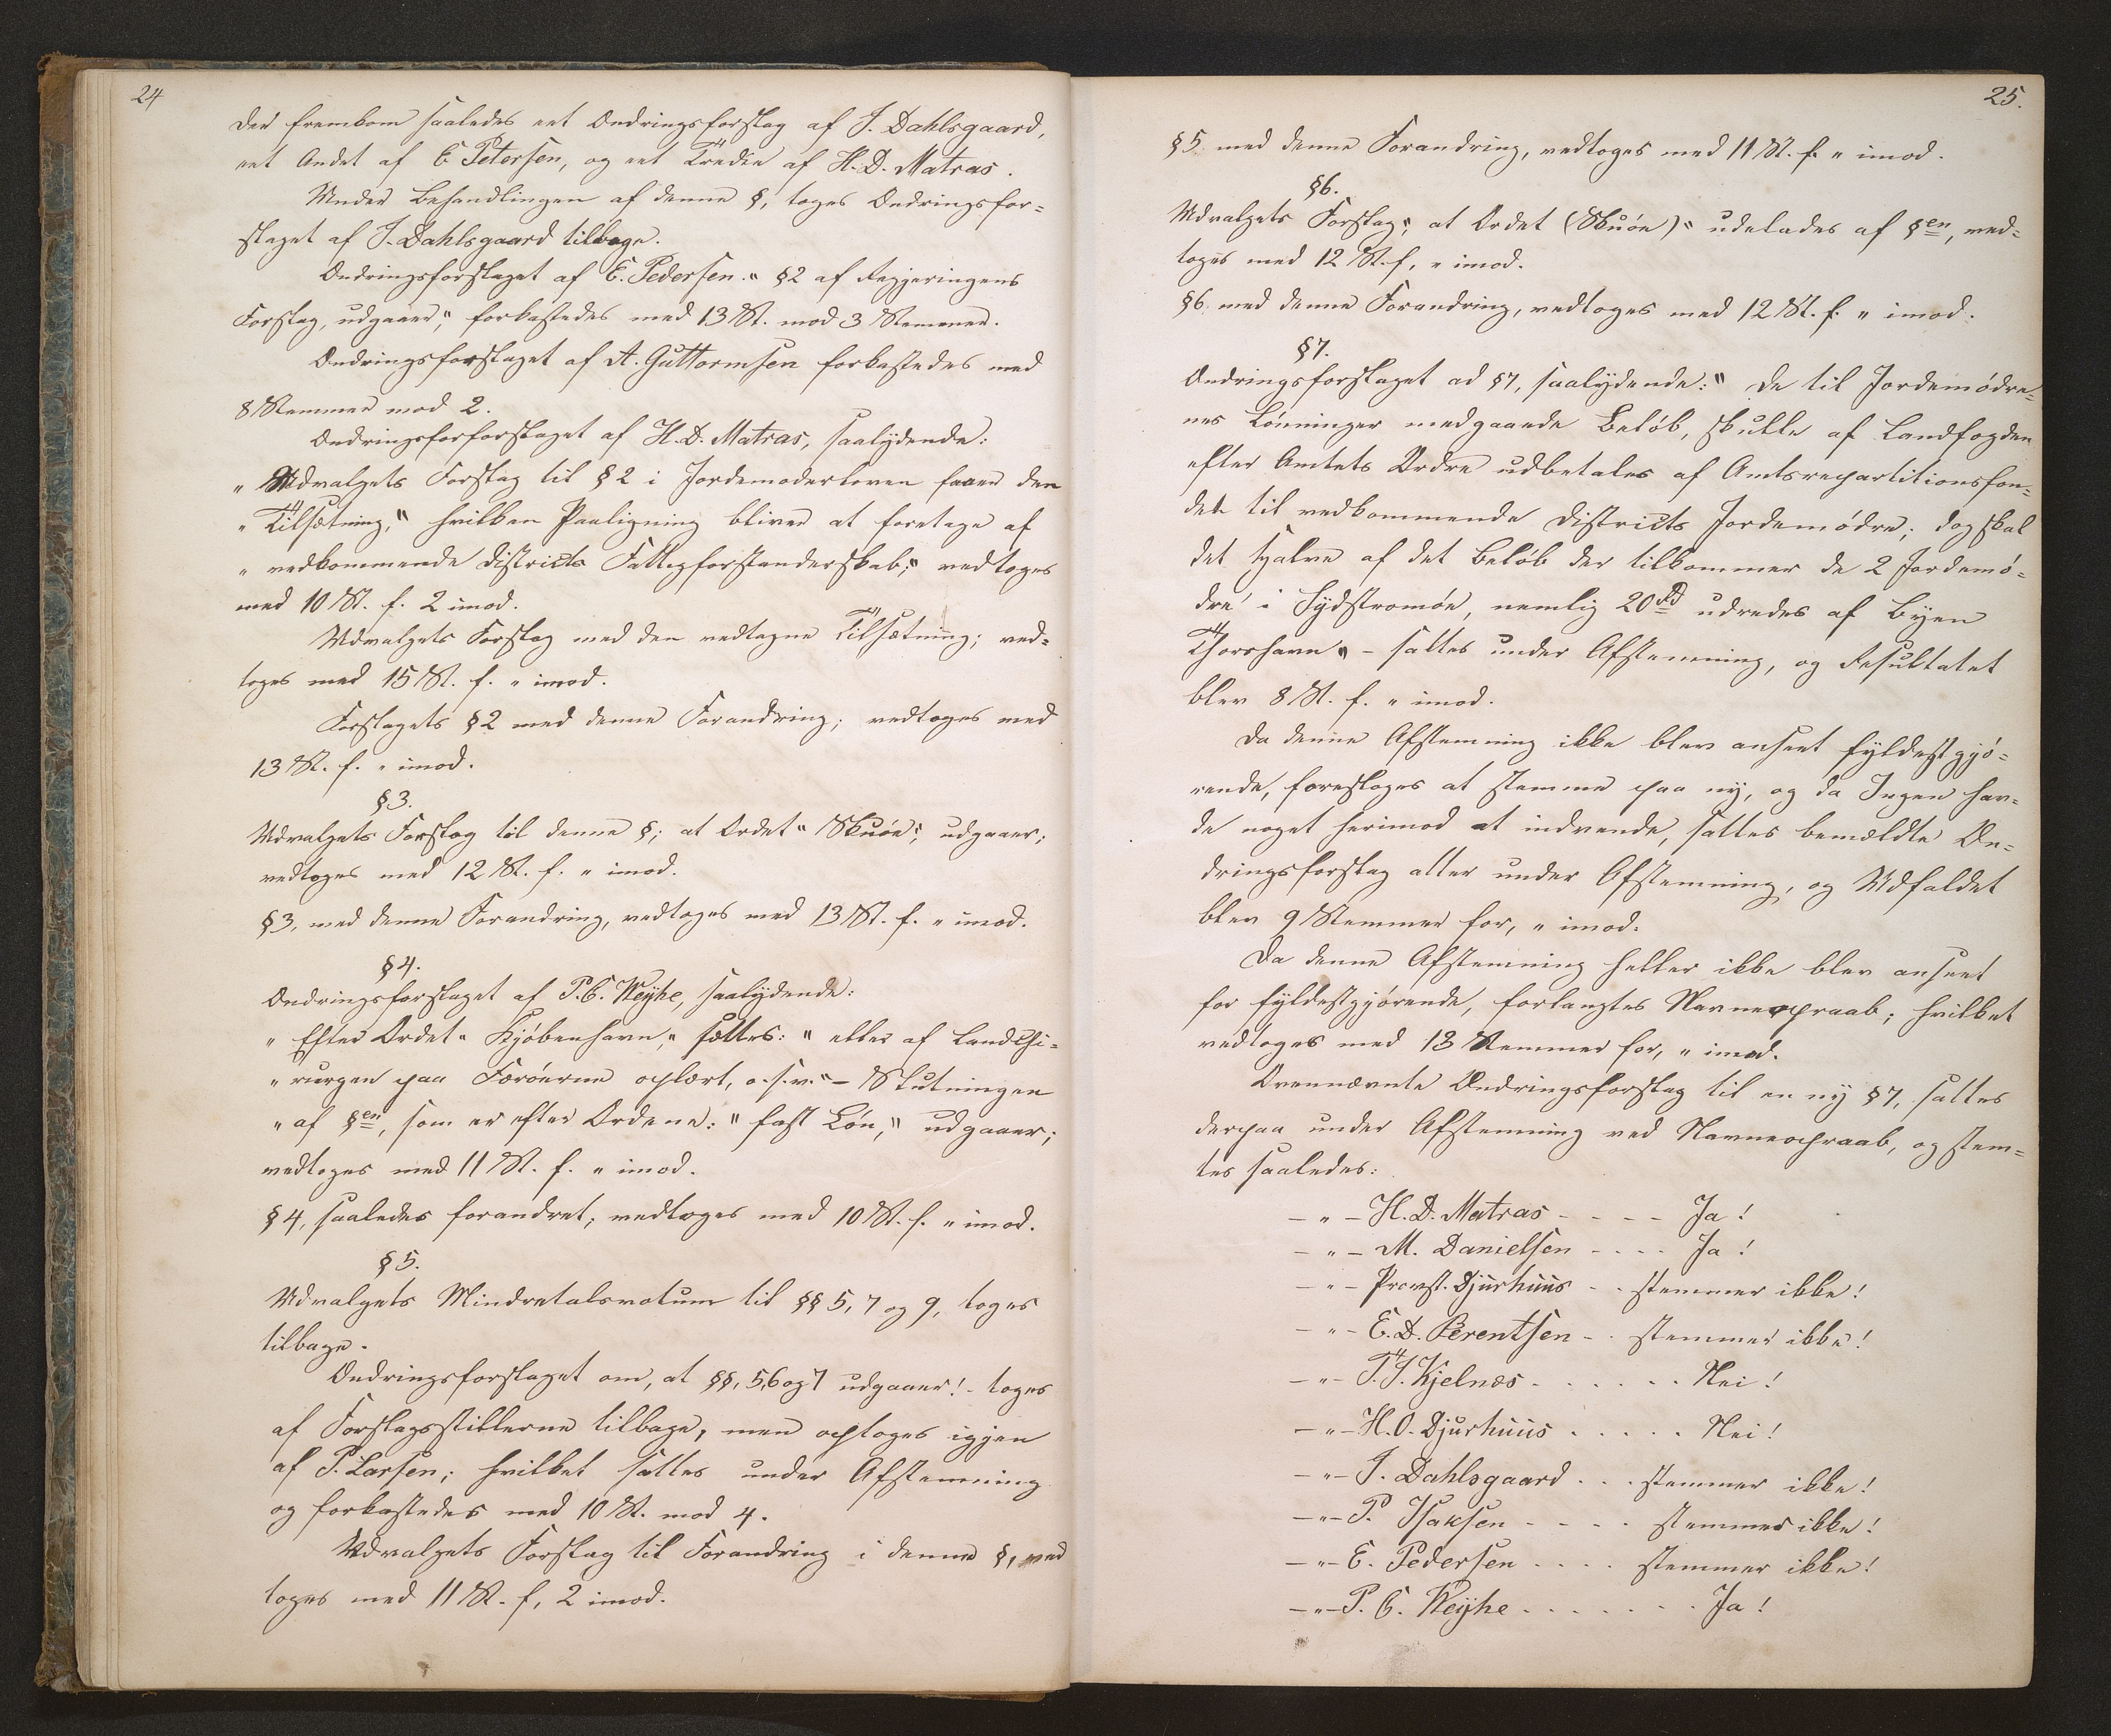 24
der fremkom saaledes eet Ændringsforslag af J. Dahlsgaard,
eet Andet af E Petersen, og eet Tredie af H. D. Matras.
Under Behandlingen af denne §, toges Ændringsfor=
slaget af J. Dahlsgaard tilbage.
Ændringsforslaget af E. Pedersen. "§2 af Regjeringens
Forslag, udgaaer", forkastedes med 13 St. mod 3 Stemmer.
Ændringsforslaget af A. Guttormsen forkastedes med
8 Stemmer mod 2.
Ændringsforforslaget af H. D. Matras, saalydende:
" Udvalgets Forslag til §2 i Jordemoderloven faaer den
" Tilsætning," hvilken Paaligning bliver at foretage af
" vedkommende Districts Fattigforstanderskab," vedtoges
med 10 St. f. 2 imod.
Udvalgets Forslag med den vedtagne Tilsætning; ved=
toges med 15 St. f. " imod.
Forslagets §2 med denne Forandring; vedtoges med
13 St. f. " imod.
§3.
Udvalgets Forslag til denne §; at Ordet "Skuöe", udgaaer;
vedtoges med 12 St. f. " imod.
§3, med denne Forandring, vedtoges med 13 St. f. " imod.
§4.
Ændringsforslaget af P. C. Weyhe, saalydende:
" Efter Ordet "Kjöbenhavn," sættes: " eller af Landchi=
" rurgen paa Færöerne oplært, o.s.v." – Slutningen
" af §en, som er efter Ordene: " fast Lön," udgaaer;
vedtoges med 11 St. f. " imod.
§4, saaledes forandret, vedtoges med 10 St. f. " imod.
§5.
Udvalgets Mindretalsvotum til §§ 5, 7 og 9, toges
tilbage.
Ændringsforslaget om, at §§, 5,6 og 7 udgaaer! – toges
af Forslagsstillerne tilbage, men optoges igjen
af P. Larsen; hvilket sattes under Afstemning
og forkastedes med 10 St. mod 4.
Udvalgets Forslag til Forandring i denne §, ved
toges med 11 St. f, 2 imod.
25.
§5 med denne Forandring, vedtoges med 11 St. f. " imod.
§6.
Udvalgets Forslag", at Ordet (Skuöe)" udelades af §en, ved=
toges med 12 St. f, " imod.
§6, med denne Forandring, vedtoges med 12 St. f. " imod.
§7.
Ændringsforslaget ad §7, saalydende: " De til Jordemödre=
nes Lönninger medgaaende Belöb, skulle af Landfogden
efter Amtets Ordre udbetales af Amtsrepartitionsfon=
det til vedkommende Districts Jordemödre; dog skal
det Halve af det Belöb der tilkommer de 2 Jordemö=
dre i Sydstromöe, nemlig 20 Rd udredes af Byen
Thorshavn" – sattes under Afstemning, og Resultatet
blev 8 St. f. " imod.
Da denne Afstemning ikke blev anseet fyldestgjö=
rende, foresloges at stemme paa ny, og da Ingen hav=
de noget herimod at indvende, sattes bemeldte Æn=
dringsforslag atter under Afstemning, og Udfaldet
blev 9 Stemmer for, " imod.
Da denne Afstemning heller ikke blev anseet
for fyldestgjörende, forlangtes Navneopraab; hvilket
vedtoges med 13 Stemmer for, " imod.
Ovennævnte Ændringsforslag til en ny §7, sattes
derpaa under Afstemning ved Navneopraab, og stem=
tes saaledes:
– " – H. D. Matras - - - - Ja!
– " – M. Danielsen - - - - Ja!
– " – Provst. Djurhuus - - stemmer ikke!
– " – E. D. Berentsen - - stemmer ikke!
– " – T. S. Kjelnæs - . . . . . Nei!
– " – H. O. Djurhuus . . . . . Nei!
– " – J. Dahlsgaard . . . stemmer ikke!
– " – P. Isaksen - - - . stemmer ikke!
– " – E. Pedersen - - . . stemmer ikke!
– " – P. C. Weyhe . . . . . . . Ja!